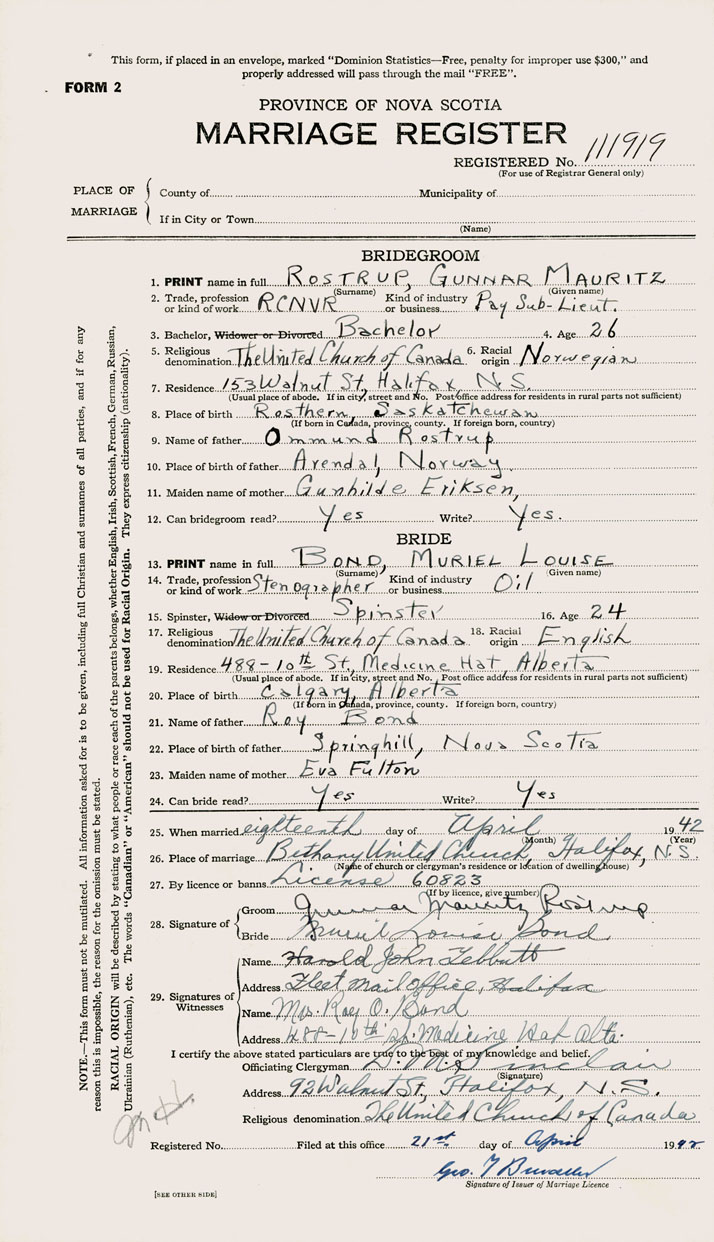 This form, if placed in an envelope, marked "Dominion Statistics—Free, penalty for improper use $300," and
properly addressed will pass through the mail "FREE".
FORM 2
PROVINCE OF NOVA SCOTIA
MARRIAGE REGISTER
REGISTERED No. 111919
(For use of Registrar General only)
PLACE OF MARRIAGE
County of Municipality of
If in City or Town
(Name)
BRIDEGROOM
1. PRINT name in full ROSTRUP, GUNNAR MAURITZ
(Surname) (Given name)
2. Trade, profession or kind of work RCNVR Kind of industry or business Pay Sub-Lieut.
3. Bachelor, Widower or Divorced Bachelor 4. Age 26
5. Religious denomination The United Church of Canada 6. Racial origin Norwegian
7. Residence 153 Walnut St, Halifax, N.S.
(Usual place of abode. If in city, street and No. Post office address for residents in rural parts not sufficient)
8. Place of birth Rosthern, Saskatchewan
(If born in Canada, province, county. If foreign born, country)
9. Name of father Ommund Rostrup
10. Place of birth of father Arendal, Norway.
11. Maiden name of mother Gunhilde Eriksen,
12. Can bridegroom read? Yes Write? Yes.
BRIDE
13. PRINT name in full BOND, MURIEL LOUISE
(Surname) (Given name)
14. Trade, profession or kind of work Stenographer Kind of industry or business Oil
15. Spinster, Widow or Divorced Spinster 16. Age 24
17. Religious denomination The United Church of Canada 18. Racial origin English
19. Residence 488-10th St, Medicine Hat, Alberta
(Usual place of abode. If in city, street and No. Post office address for residents in rural parts not sufficient)
20. Place of birth Calgary, Alberta
(If born in Canada, province, county. If foreign born, country)
21. Name of father Roy Bond
22. Place of birth of father Springhill, Nova Scotia
23. Maiden name of mother Eva Fulton
24. Can bride read? Yes Write? Yes
25. When married eighteenth day of April 1942
(Month) (Year)
26. Place of marriage Bethany United Church, Halifax, N.S.
(Name of church or clergyman's residence or location of dwelling house)
27. By licence or banns License 60823
(If by licence, give number)
28. Signature of
Groom Gunnar Mauritz Rostrup
Bride Muriel Louise Bond
29. Signatures of Witnesses
Name Harold John Tebbutt
Address Fleet Mail Office, Halifax
Name Mrs. Roy O. Bond
Address 488-10th St. Medicine Hat Alta.
I certify the above stated particulars are true to the best of my knowledge and belief.
Officiating Clergyman D. M. Sinclair
(Signature)
Address 92 Walnut St, Halifax, N.S.
Religious denomination The United Church of Canada
Registered No. Filed at this office 21st day of April 1942
Geo.
Signature of Issuer of Marriage Licence
[SEE OTHER SIDE]
NOTE.—This form must not be mutilated. All information asked for is to be given, including full Christian and surnames of all parties, and if for any
reason this is impossible, the reason for the omission must be stated.
RACIAL ORIGIN will be described by stating to what people or race each of the parents belongs, whether English, Irish, Scottish, French, German, Russian,
Ukrainian (Ruthenian), etc. The words "Canadian" or "American" should not be used for Racial Origin. They express citizenship (nationality).